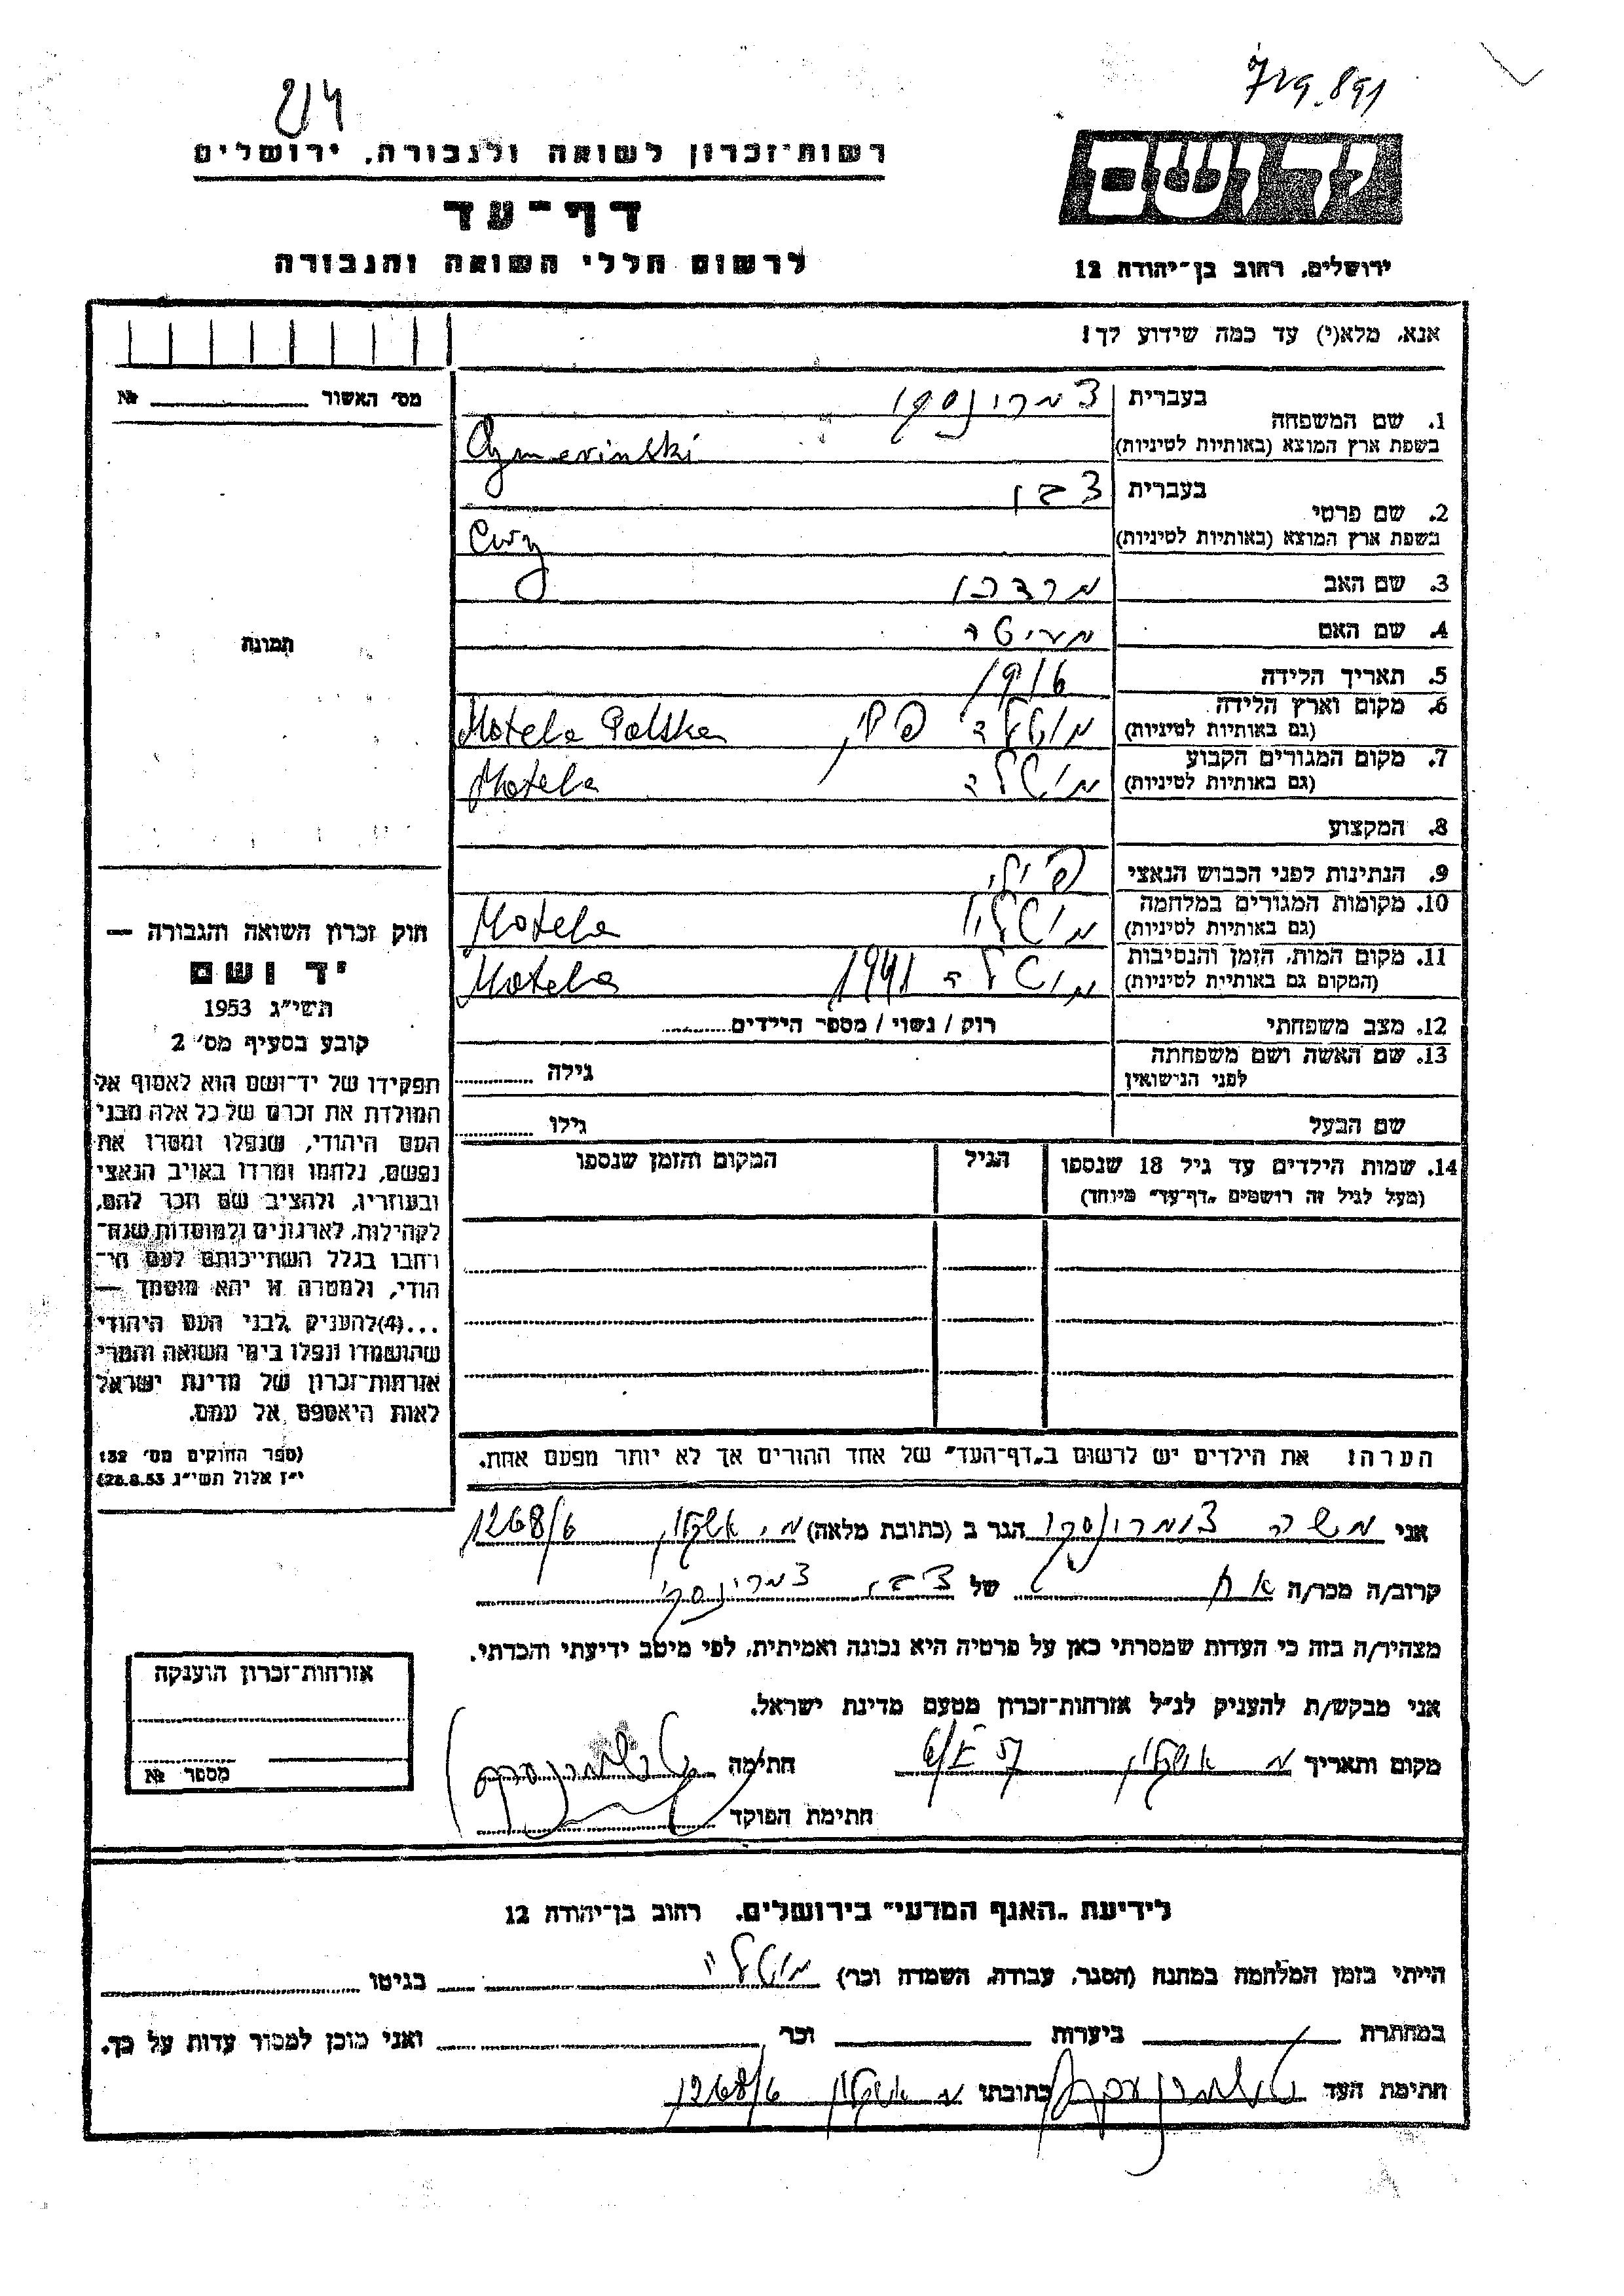 214
729.891
רשות־זכרון לשואה ולגבורה, ירושלים
דף־עד
לרשום חללי השואה והגבורה
יד ושם
ירושלים, רחוב בן־יהודה 12
אנא, מלא(י) עד כמה שידוע לך!
מס׳ האשור № 
1. שם המשפחה
בעברית צמרינסקי
בשפת ארץ המוצא (באותיות לטיניות) Cymerinski
2. שם פרטי
בעברית צבי
בשפת ארץ המוצא (באותיות לטיניות) Cwy
3. שם האב מרדכי
4. שם האם
5. תאריך הלידה 1916
6. מקום וארץ הלידה (גם באותיות לטיניות) מוטלה Motela Polska
7. מקום המגורים הקבוע (גם באותיות לטיניות) מוטלה Motela
8. המקצוע
9. הנתינות לפני הכבוש הנאצי פולני
10. מקומות המגורים במלחמה (גם באותיות לטיניות) מוטלה Motela
11. מקום המות, הזמן והנסיבות (המקום גם באותיות לטיניות) מוטלה 1941 Motela
12. מצב משפחתי רוק / נשוי / מספר הילדים
13. שם האשה ושם משפחתה לפני הנישואין גילה
שם הבעל גילו
14. שמות הילדים עד גיל 18 שנספו הגיל המקום והזמן שנספו
(מעל לגיל זה רושמים „דף־עד״ מיוחד)
תמונה
חוק זכרון השואה והגבורה —
יד ושם
תשי״ג 1953
קובע בסעיף מס׳ 2
תפקידו של יד־ושם הוא לאסוף אל
המולדת את זכרם של כל אלה מבני
העם היהודי, שנפלו ומסרו את
נפשם, נלחמו ומרדו באויב הנאצי
ובעוזריו, ולהציב שם וזכר להם,
לקהילות, לארגונים ולמוסדות שנח־
רבו בגלל השתייכותם לעם הי־
הודי, ולמטרה זו יהא מוסמך —
...(4)להעניק לבני העם היהודי
שהושמדו ונפלו בימי השואה והמרי
אזרחות־זכרון של מדינת ישראל
לאות היאספם אל עמם.
(ספר החוקים מס׳ 132
י״ז אלול תשי״ג 28.8.53)
הערה: את הילדים יש לרשום ב„דף־העד״ של אחד ההורים אך לא יותר מפעם אחת.
אני משה צומרינסקי הגר ב (כתובת מלאה) מ. אשקלון 1268/6
קרוב/ה מכר/ה אח של צבי צמרינסקי
מצהיר/ה בזה כי העדות שמסרתי כאן על פרטיה היא נכונה ואמיתית, לפי מיטב ידיעתי והכרתי.
אני מבקש/ת להעניק לנ״ל אזרחות־זכרון מטעם מדינת ישראל.
מקום ותאריך מ אשקלון חתימה
חתימת הפוקד
אזרחות־זכרון הוענקה
מספר №
לידיעת „האגף המדעי״ בירושלים, רחוב בן־יהודה 12
הייתי בזמן המלחמה במחנה (הסגר, עבודה, השמדה וכו׳) מוטלה בגיטו
במחתרת ביערות וכו׳ ואני מוכן למסור עדות על כך.
חתימת העד כתובתו מ אשקלון 1268/6